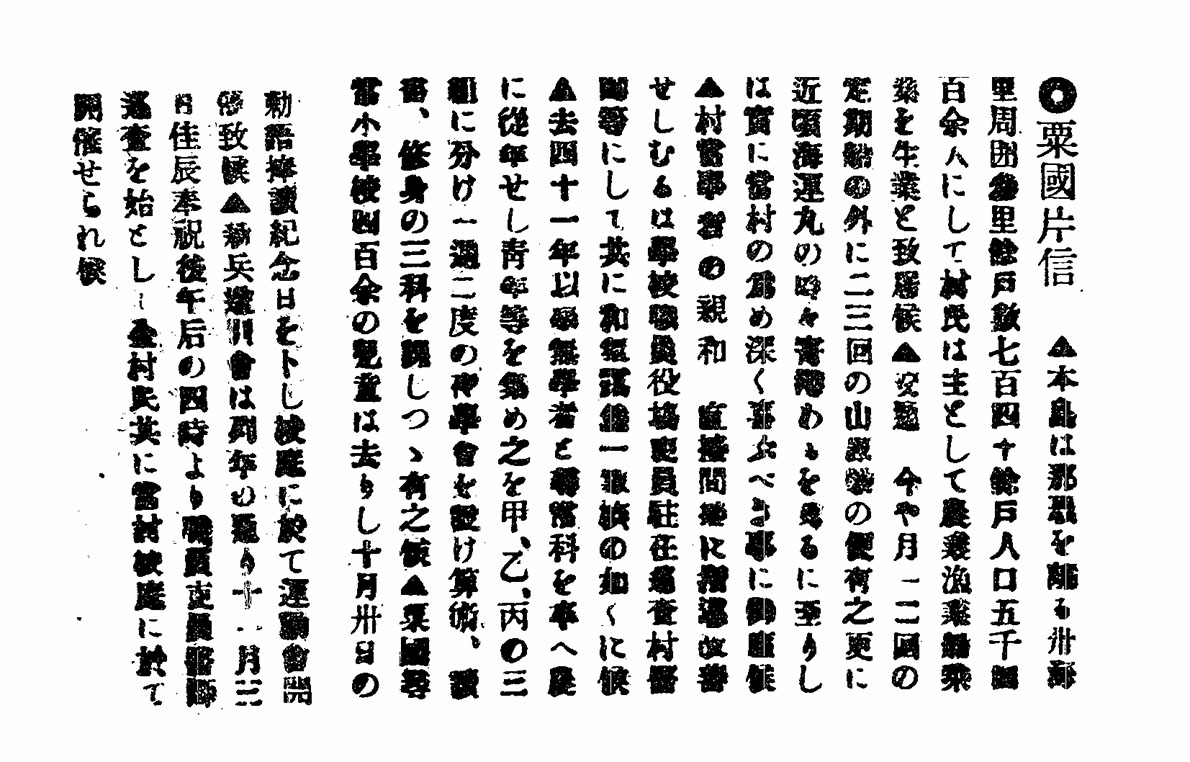 ◎粟國片信　▲本島は那覇を離る卅海
里周囲參里餘戸數七百四十餘戸人口五千四
百余人にして村民は主として農業漁業船乗
業を生業と致居候▲交通　今や月一二回の
定期船の外に二三回の山原船の便有之更に
近頃海運丸の時々寄港わるを見るに至りし
は實に當村の爲め深く喜ぶべき事に御座候
▲村當事者の親和　直接間接に指導改善
せしむるは學校職員役塲吏員駐在巡査村醫
四等にして共に和氣靄然一家族の如くに候
▲去四十一年以來無學者と尋常科を卒へ農
に從事せし青年等を集め之を甲、乙、丙の三
組に分け一週二度の夜學會を設け算術、讀
書、修身の三科を課しつゝ有之候▲粟國尋
常小學校四百余の兒童は去りし十月卅日の
勅語捧讀紀念日をトし校庭に於て運動會開
修致候▲新兵送別會は例年の通り十一月三
日佳辰奉祝後午后の四時より職員吏員醫師
巡査を始とし全村民共に當村校庭に於て
開催せられ候